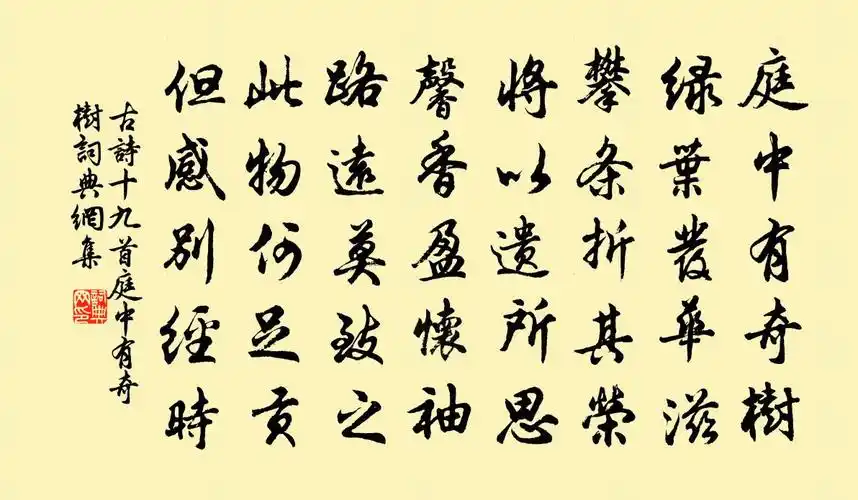 庭中有奇樹
緑葉發華滋
攀条折其榮
將以遺所思
馨香盈懷袖
路遠莫致之
此物何足貢
但感别經時
古詩十九首庭中有奇
樹詞典網集
詞典網